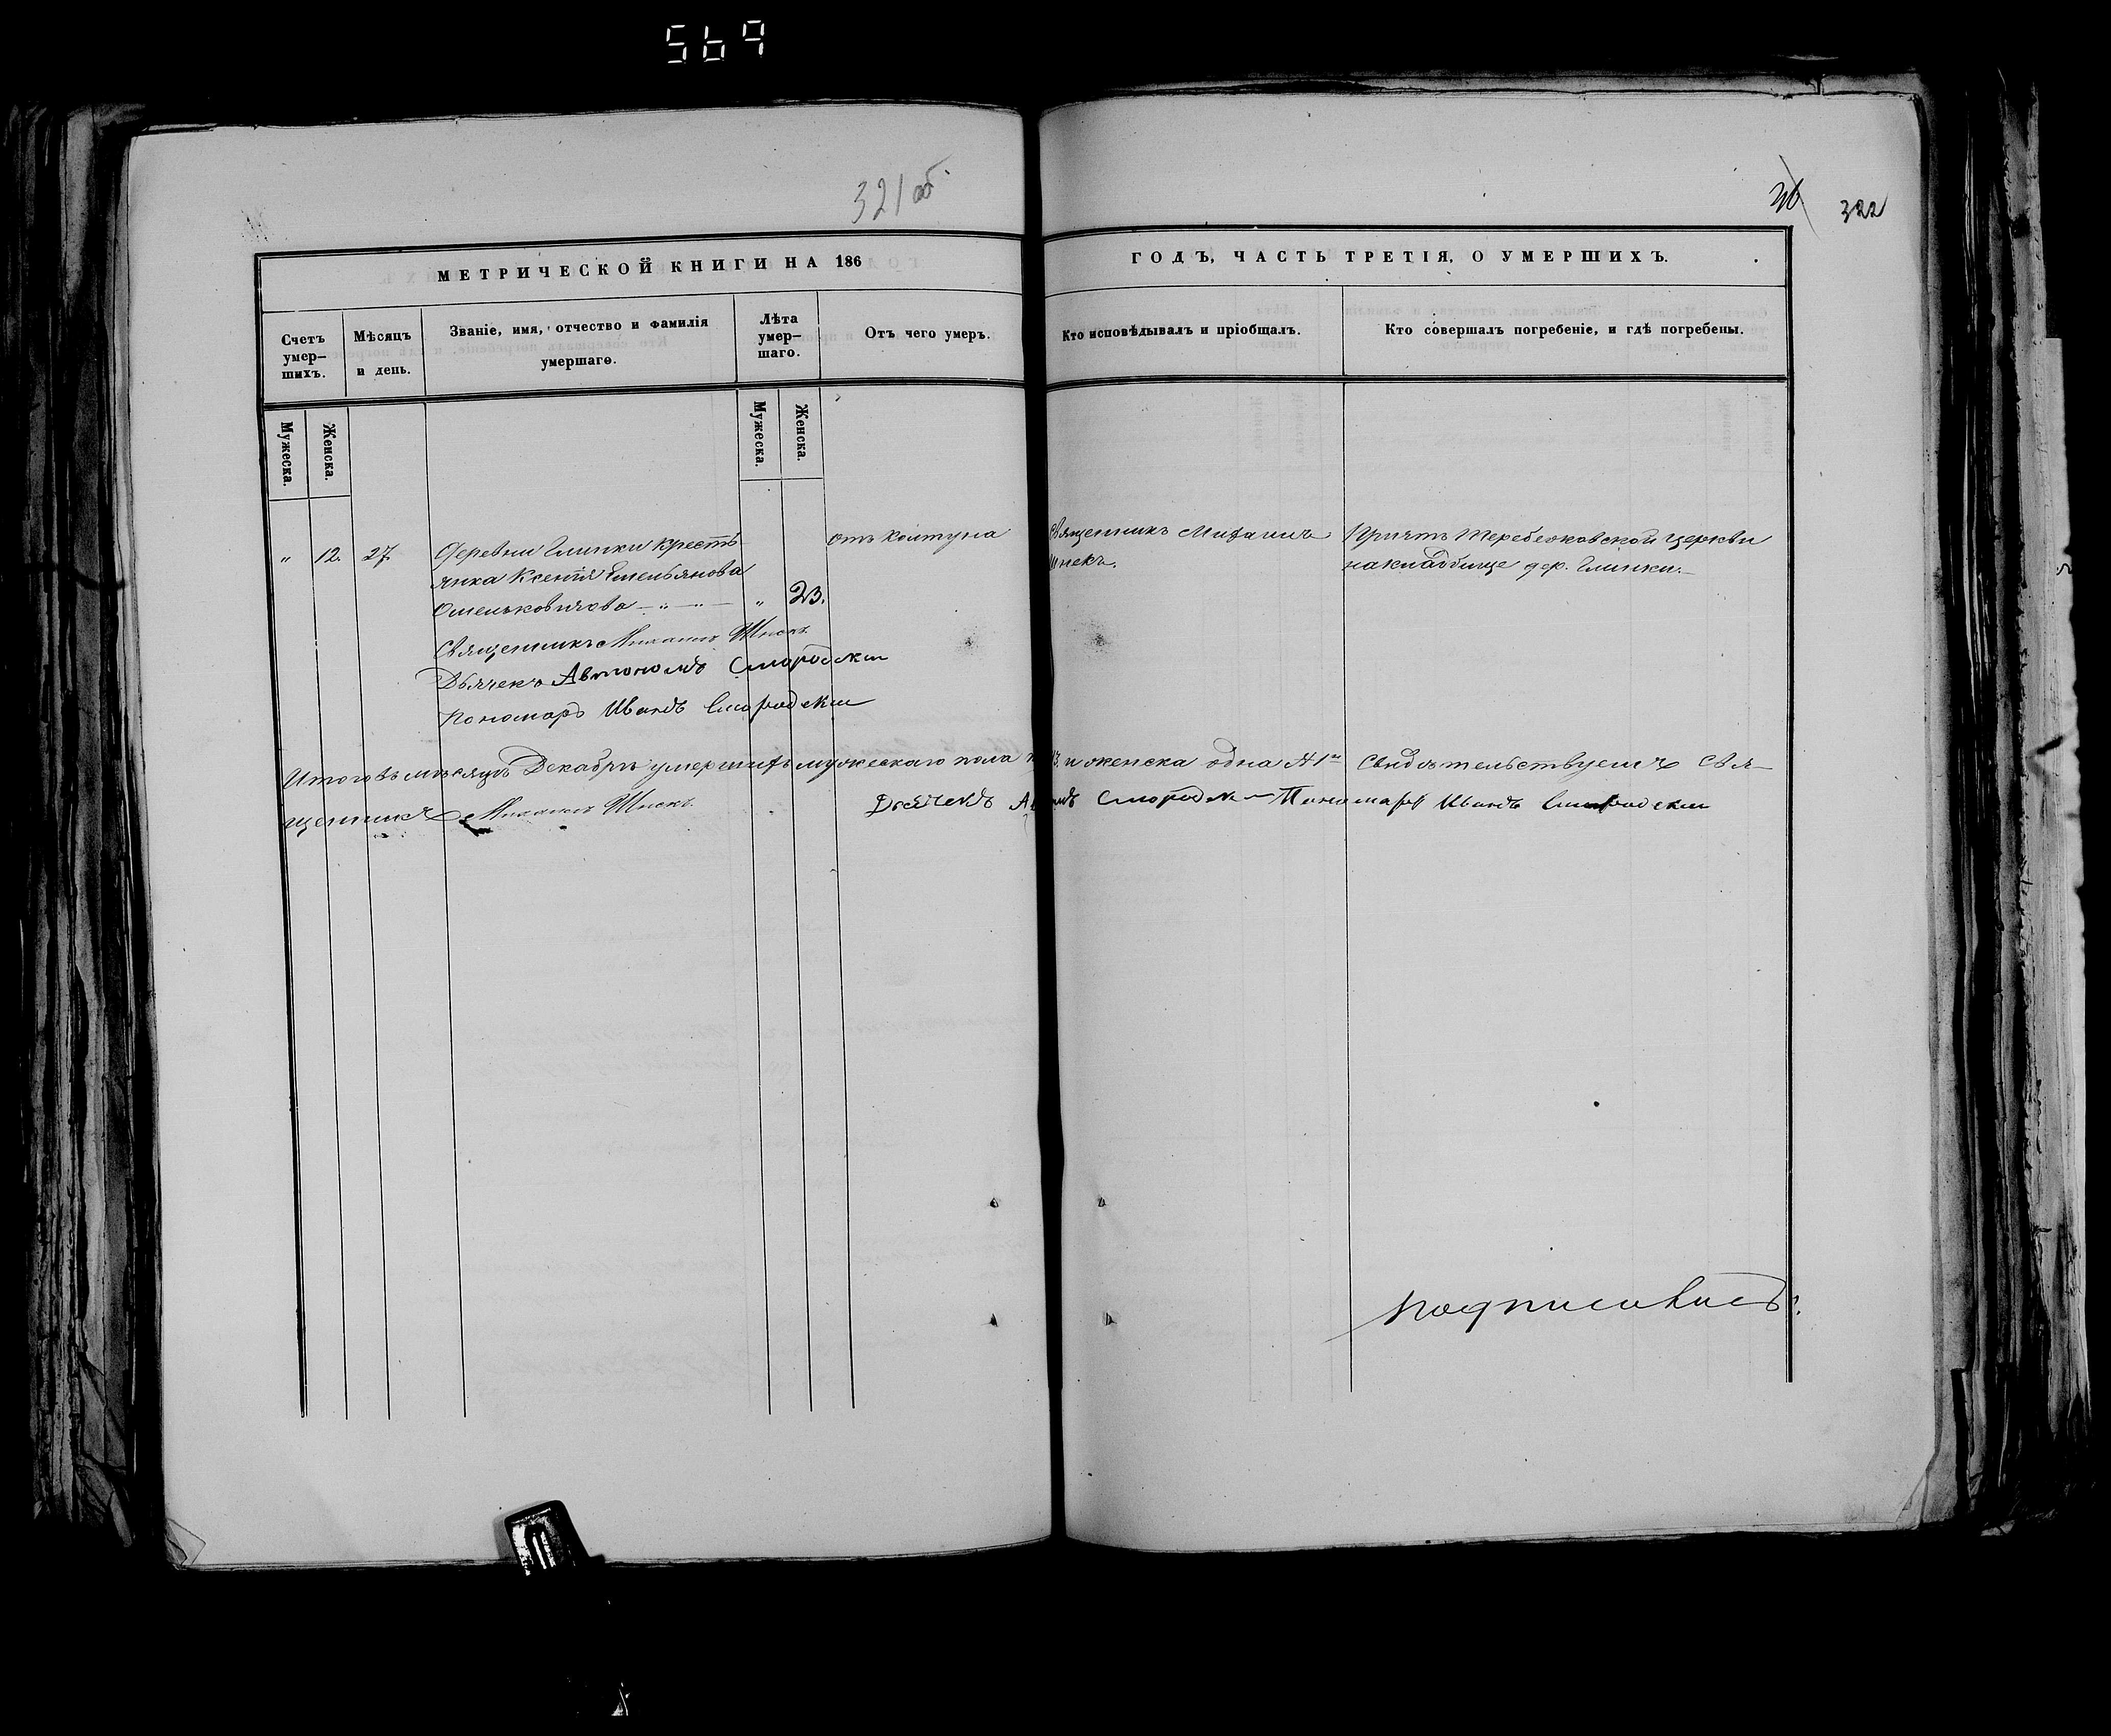 569
321об.
322
МЕТРИЧЕСКОЙ КНИГИ НА 186
ГОДЪ, ЧАСТЬ ТРЕТІЯ, О УМЕРШИХЪ.
Счетъ умер-
шихъ.
Мѣсяцъ
и день.
Званіе, имя, отчество и фамилія
умершаго.
Лѣта
умер-
шаго.
Отъ чего умеръ.
Кто исповѣдывалъ и пріобщалъ.
Кто совершалъ погребеніе, и гдѣ погребены.
Мужеска.
Женска.
Мужеска.
Женска.
" 12. 27. Деревни Глинки кресть-
янка Ксенія Емельянова
Омельковичова — " — " 23.
отъ колтуна
Священникъ Михаилъ
Шнекъ.
Причтъ Теребежовской церкви
на кладбище дер. Глинки.
Священникъ Михаилъ Шнекъ
Дьячекъ Автономъ Смородски
Пономаръ Иванъ Смородски
Итого въ мѣсяцѣ Декабрѣ умершихъ мужескаго пола и женска одна А 1 Свидѣтельствуемъ Свя-
щенникъ Михаилъ Шнекъ Дьячекъ Смородски Пономаръ Иванъ Смородски